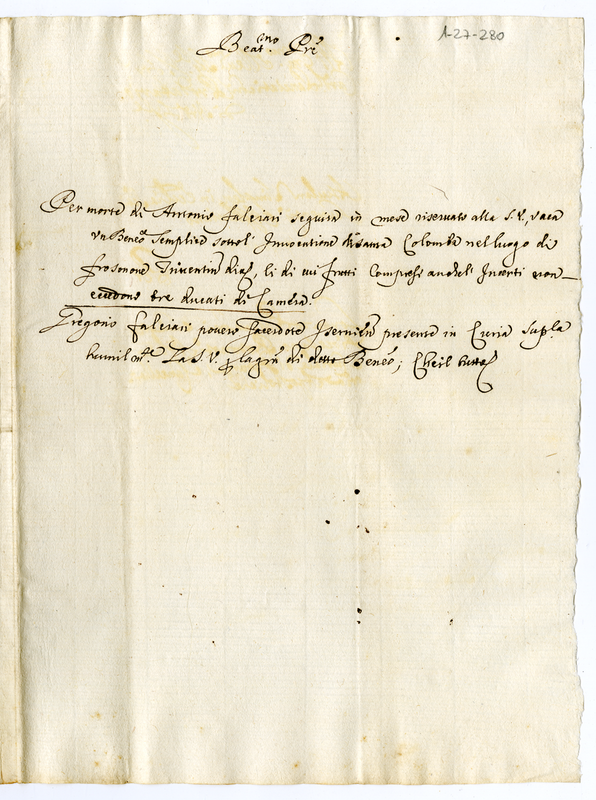 1-27-280
Beat.mo Pre
Per morte di Antonio falciari seguita in mese riservato alla S. V., vaca
un Benef.o semplice sotto l'Invocatione di santa Colomba nel luogo di
frosonone Triventin, li di cui frutti compresi anche l'Incerti non
eccedono tre ducati di Camera.
Gregorio falciari povero sacerdote Isernien presente in Curia sup.ca
humil.mte La S. V. p la gra di detto Benef.o; Che il tutto